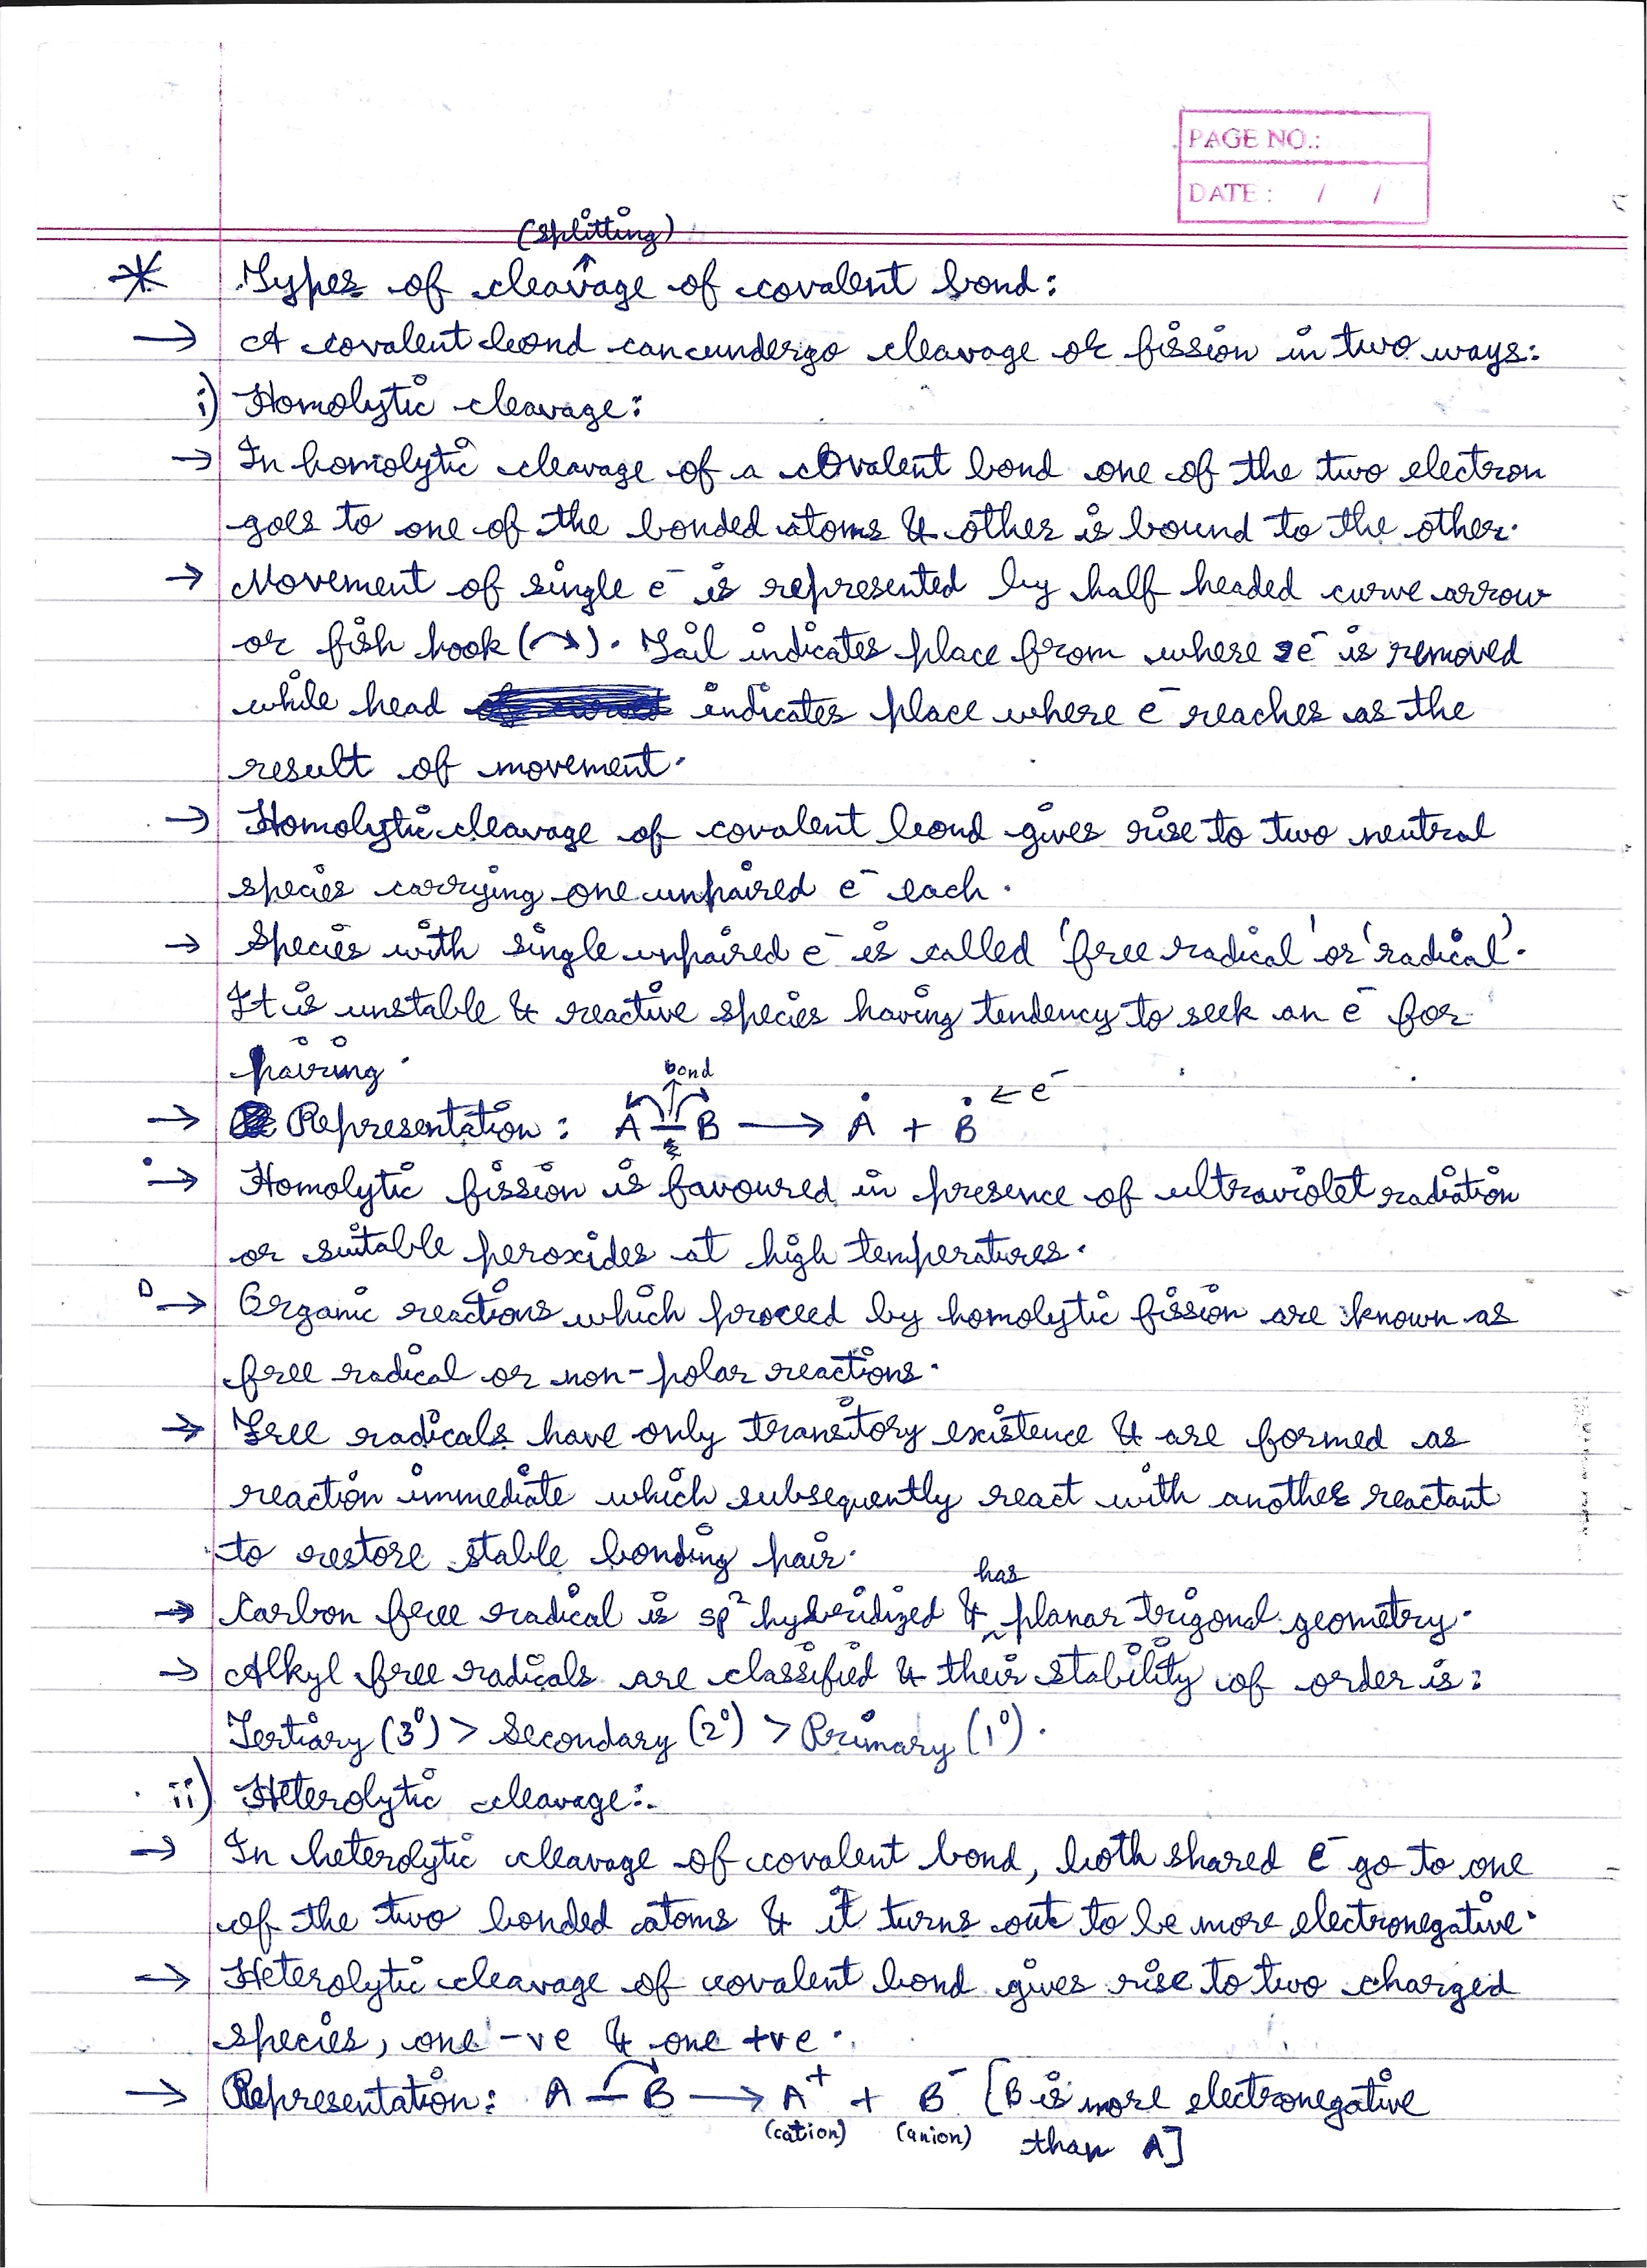 PAGE NO.:
DATE : / /
(splitting)
* Types of cleavage of covalent bond:
→ A covalent bond can undergo cleavage or fission in two ways:
i) Homolytic cleavage:
→ In homolytic cleavage of a covalent bond one of the two electron
goes to one of the bonded atoms & other is bound to the other.
→ Movement of single e⁻ is represented by half headed curve arrow
or fish hook (⇀). Tail indicates place from where e⁻ is removed
while head indicates place where e⁻ reaches as the
result of movement.
→ Homolytic cleavage of covalent bond gives rise to two neutral
species carrying one unpaired e⁻ each.
→ Species with single unpaired e⁻ is called 'free radical' or 'radical'.
It is unstable & reactive species having tendency to seek an e⁻ for
pairing.
bond
→ Representation: A — B ⟶ Ȧ + Ḃ ← e⁻
→ Homolytic fission is favoured in presence of ultraviolet radiation
or suitable peroxides at high temperatures.
→ Organic reactions which proceed by homolytic fission are known as
free radical or non-polar reactions.
→ Free radicals have only transitory existence & are formed as
reaction immediate which subsequently react with another reactant
to restore stable bonding pair.
→ Carbon free radical is sp² hybridized & has planar trigonal geometry.
→ Alkyl free radicals are classified & their stability of order is:
Tertiary (3⁰) > Secondary (2⁰) > Primary (1⁰).
ii) Heterolytic cleavage:
→ In heterolytic cleavage of covalent bond, both shared e⁻ go to one
of the two bonded atoms & it turns out to be more electronegative.
→ Heterolytic cleavage of covalent bond gives rise to two charged
species, one -ve & one +ve.
→ Representation: A — B ⟶ A⁺ + B⁻ [B is more electronegative
(cation) (anion) than A]